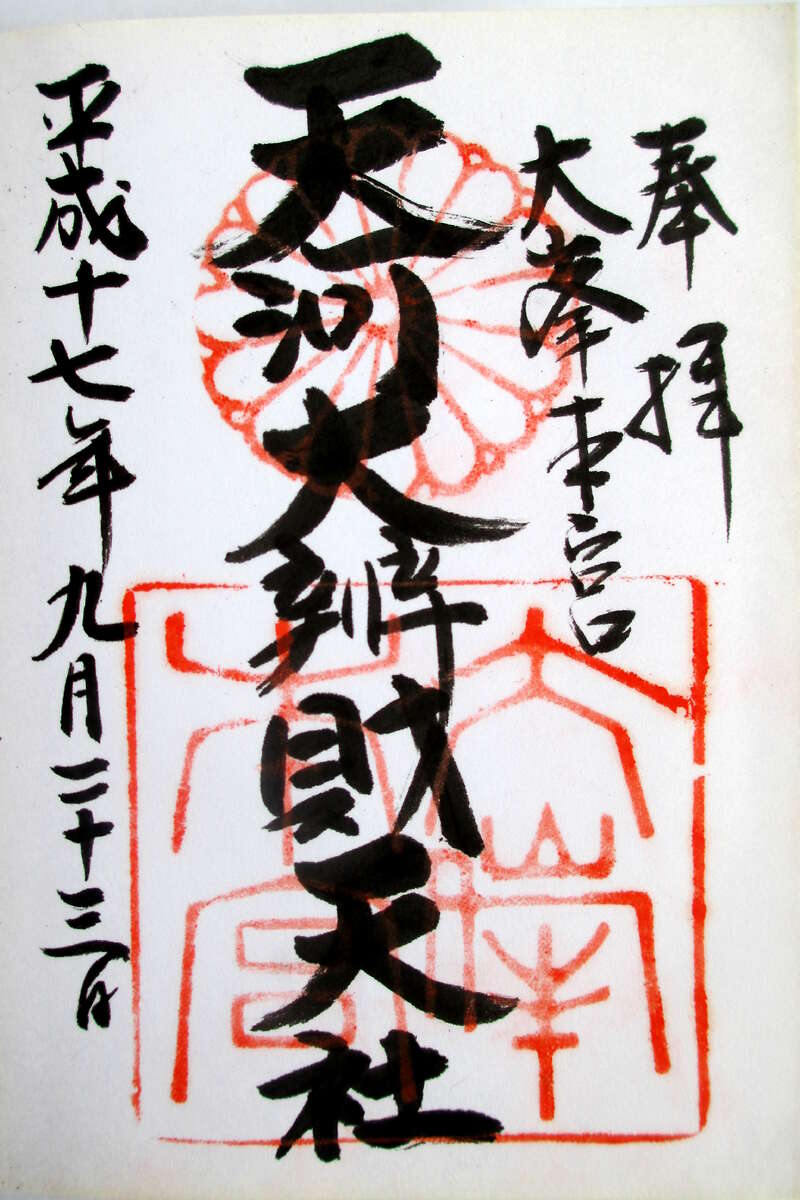 奉拝
大峯本宮
天河大辨財天社
平成十七年九月二十三日